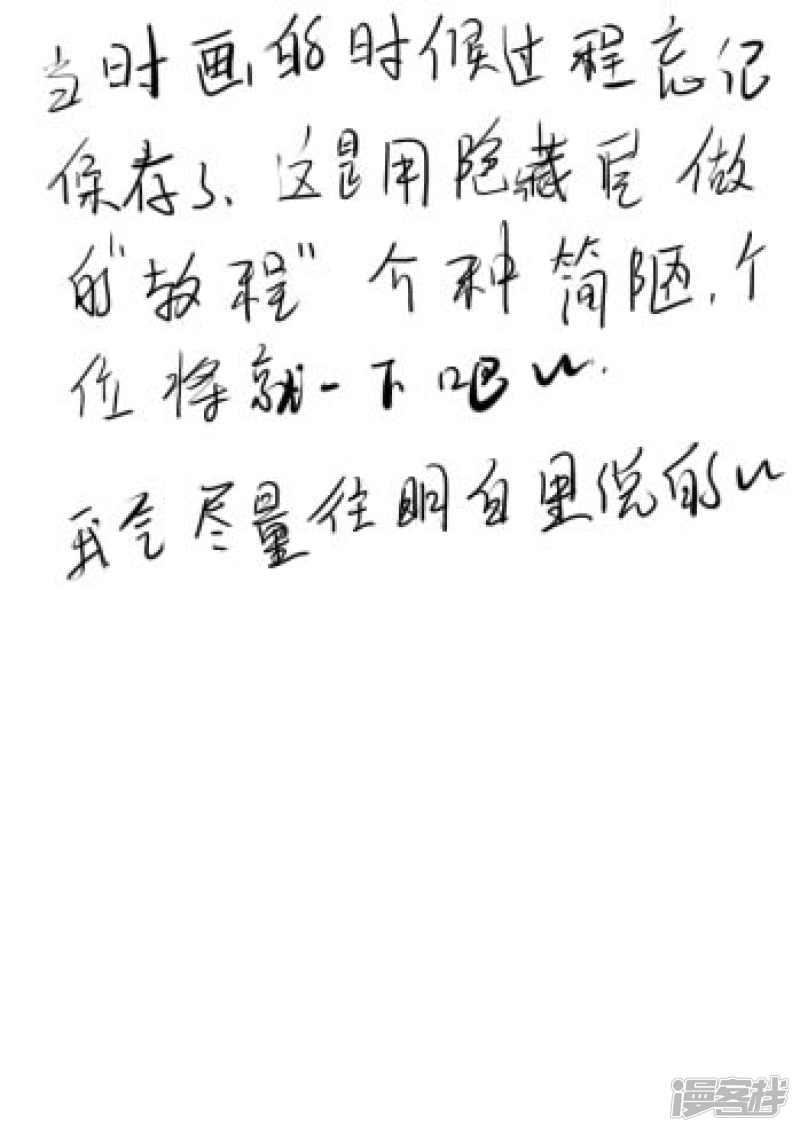 当时画的时候过程忘记
保存了、这是用隐藏层做
的"教程" 介种简陋,个
位将就一下吧~.
我会尽量往明白里说的~
漫客栈